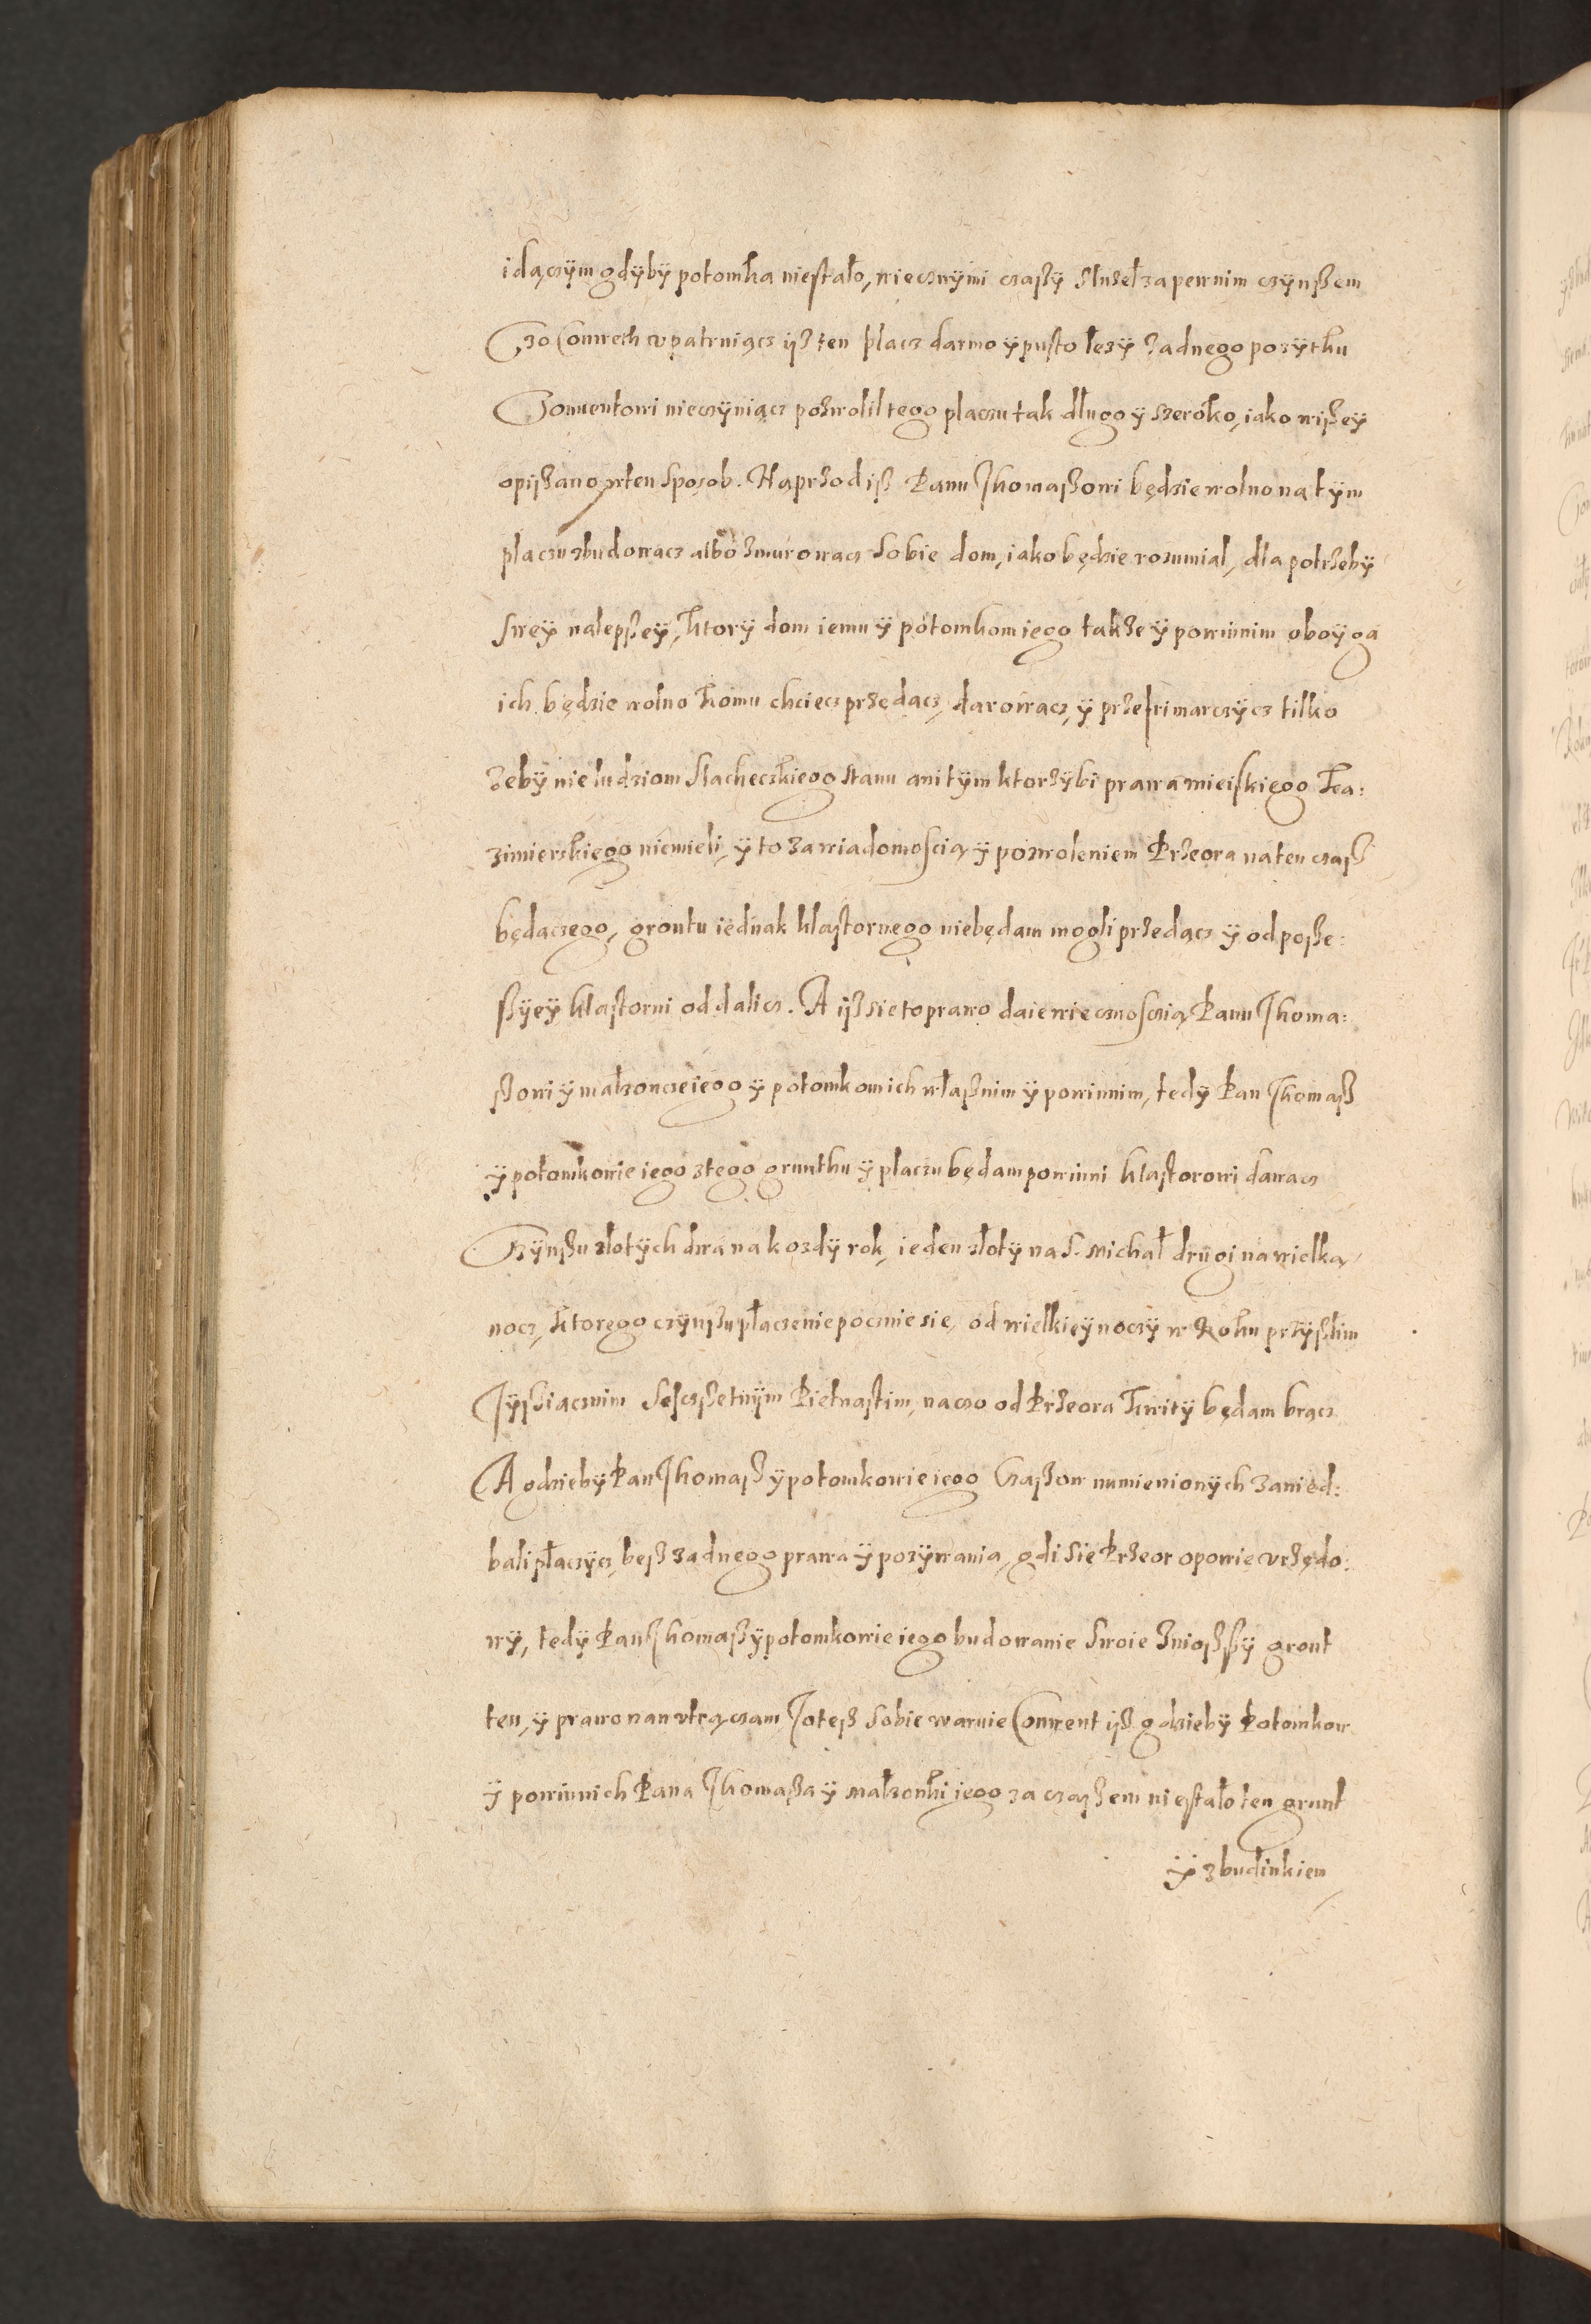 idączÿm gdÿbÿ potomka niestało, wiecznÿmi czaßÿ służeł za pewnim czÿnßem
Czo Conwenth vpatruiącz ijß ten placz darmo ÿ pusto leżÿ żadnego pozÿthu
Conventowi nieczÿniącz pozwolil tego placzu tak długo ÿ szeroko, iako wißeÿ
opijßano w ten sposob. Naprżod iß Panu Thomaßowi będzie wolno na tÿm
placzu zbudowacz albo zmurowacz sobie dom, iako będzie rozumial, dla potrżebÿ
sweÿ nalepßeÿ, ktorÿ dom iemu ÿ potomkom iego także ÿ powinnim oboÿga
ich będzie wolno komu chciecz prżedacz, darowacz, ÿ prżefrimarczÿcz tilko
żebÿ nie ludziom slacheczkiego stanu ani tÿm ktorżÿ bi prawa mieiskiego Ka:
zimierskiego niemieli, ÿ to za wiadomosczią ÿ pozwoleniem Prżeora na ten czaß
będaczego, grontu iednak klastornego niebędam mogli prżedacz ÿ od poße:
ßÿeÿ klastorni oddalicz. A ijß sie to prawo daie wiecznosczią Panu Thoma:
ßowi ÿ małżoncze iego ÿ potomkom ich właßnim ÿ powinnim, tedÿ Pan Thomaß
ÿ potomkowie iego z tego grunthu ÿ placzu będam powinni klastorowi dawacz
Czÿnßu złotÿch dwa na kozdÿ rok, ieden złotÿ na S. Michał drugi na wielką
nocz, ktorego czÿnßu płaczenie pocznie sie, od wielkieÿ noczÿ w Roku prżÿßlim
Tÿßiącznim Sesczßetnÿm Pietnastim, na czo od Prżeora kwitÿ będam bracz
A gdziebÿ Pan Thomaß ÿ potomkowie iego czaßow numienionÿch zanied:
bali płaczÿcz, beß żadnego prawa ÿ pozÿwania, gdi sie Prżeor opowie vrżędo:
wÿ, tedÿ Pan Thomaß ÿ potomkowie iego budowanie swoie znioßßÿ gront
ten, ÿ prawo nan vtraczam, Toteß sobie waruie Conwent ijß gdziebÿ Potomkow
ÿ powinnich Pana Thomaßa ÿ małżonki iego za czaßem niestało ten grunt
ÿ z budinkiem